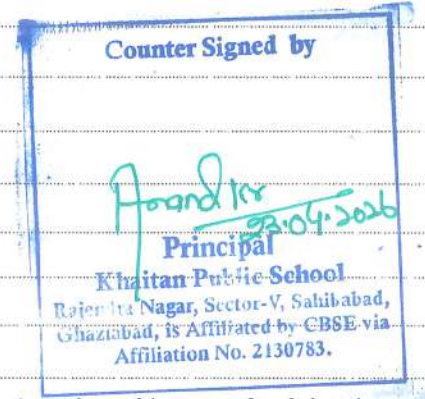 Counter Signed by
Anand Kr
23.04.2026
Principal
Khaitan Public School
Rajendra Nagar, Sector-V, Sahibabad,
Ghaziabad, is Affiliated by CBSE via
Affiliation No. 2130783.